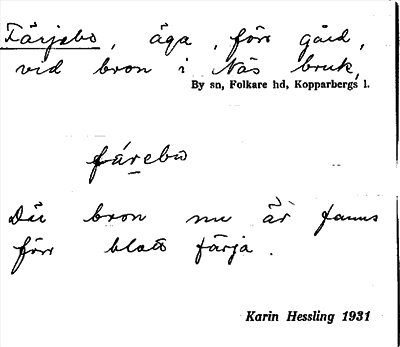 Färjebo, äga, förr gård,
vid bron i Näs bruk,
By sn, Folkare hd, Kopparbergs l.
färebω
Där bron nu är fanns
förr blott färja.
Karin Hessling 1931